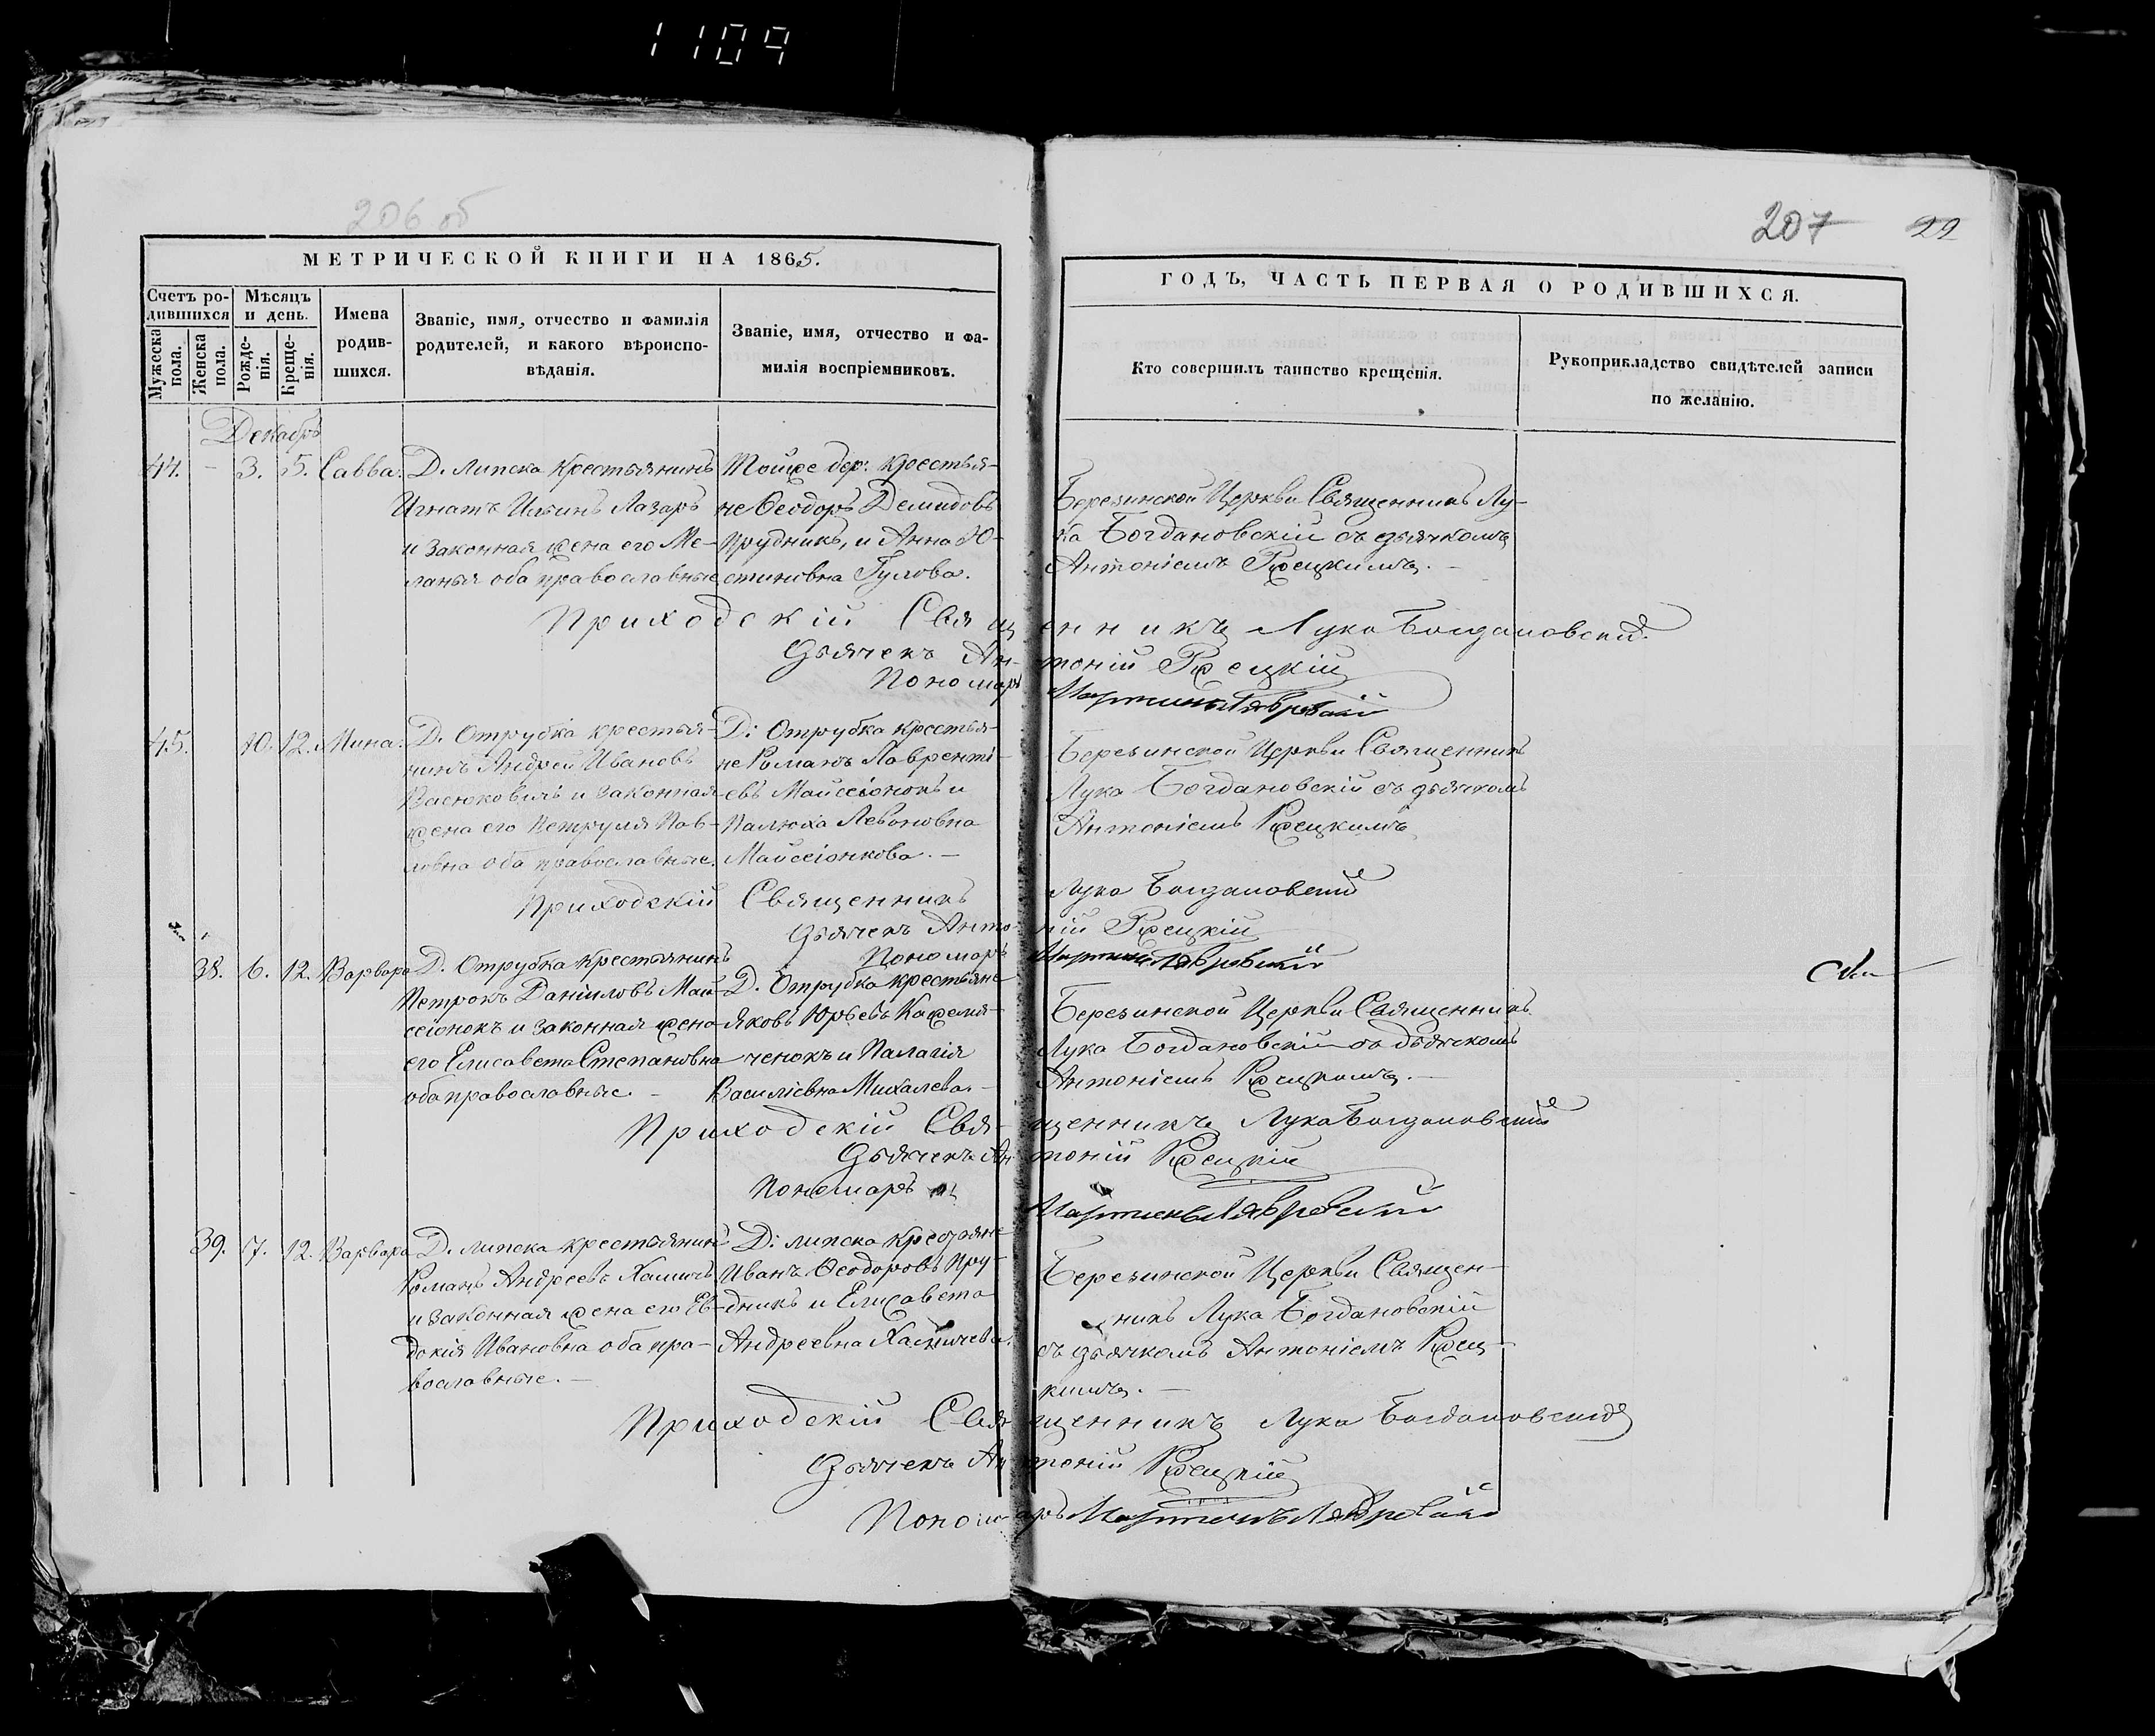 1109
206 об
207 22
МЕТРИЧЕСКОЙ КНИГИ НА 1865.
Счетъ ро-
дившихся
Мужеска пола.
Женска пола.
Мѣсяцъ
и день.
Рожде-
нія.
Креще-
нія.
Имена
родив-
шихся.
Званіе, имя, отчество и фамилія
родителей, и какого вѣроиспо-
вѣданія.
Званіе, имя, отчество и фа-
милія воспріемниковъ.
ГОДЪ, ЧАСТЬ ПЕРВАЯ О РОДИВШИХСЯ.
Кто совершилъ таинство крещенія.
Рукоприкладство свидѣтелей записи
по желанію.
Декабрь
44. - 3. 5. Савва.
Д. Липска Крестьянинъ
Игнатъ Ильинъ Лазаръ
и законная жена его Ме-
ланья оба православные
Тойже дер: крестья-
не Ѳеодоръ Демидовъ
Прудникъ, и Анна Ю-
стиновна Гулова.
Березинской Церкви Священникъ Лу-
ка Богдановскій съ дьячкомъ
Антоніемъ Ржецкимъ. -
Приходскій Священникъ Лука Богдановскій
Дьячекъ Антоній Ржецкій
Пономарь
45. 10. 12. Мина.
Д. Отрубка крестья-
нинъ Андрей Ивановъ
Васюковичъ и законная
жена его Петруля Пав-
ловна оба православные.
Д: Отрубка крестья-
не Романъ Лавренті-
евъ Майсіонокъ и
Палюха Левоновна
Майсіонкова. -
Березинской Церкви Священникъ
Лука Богдановскій съ дьячкомъ
Антоніемъ Ржецкимъ
Приходскій Священникъ Лука Богдановскій
Дьячекъ Антоній Ржецкій
Пономарь
38. 6. 12. Варвара
Д. Отрубка крестьянинъ
Петрокъ Даніиловъ Май-
сіонокъ и законная жена
его Елисавета Степановна
оба православные. -
Д. Отрубка крестьяне
Яковъ Юрьевъ Кажемя-
ченокъ и Палагія
Василіевна Михалева. -
Березинской Церкви Священникъ
Лука Богдановскій съ дьячкомъ
Антоніемъ Ржецкимъ. -
Приходскій Священникъ Лука Богдановскій
Дьячекъ Антоній Ржецкій
Пономарь
39. 7. 12. Варвара
Д. Липска крестьянинъ
Романъ Андреевъ Хамичъ
и законная жена его Ев-
докія Ивановна оба пра-
вославные. -
Д: Липска крестьяне
Иванъ Ѳеодоровъ Пру-
дникъ и Елисавета
Андреевна Хамичева.
Березинской Церкви Священ-
никъ Лука Богдановскій
съ дьячкомъ Антоніемъ Ржец-
кимъ. -
Приходскій Священникъ Лука Богдановскій
Дьячекъ Антоній Ржецкій
Пономарь